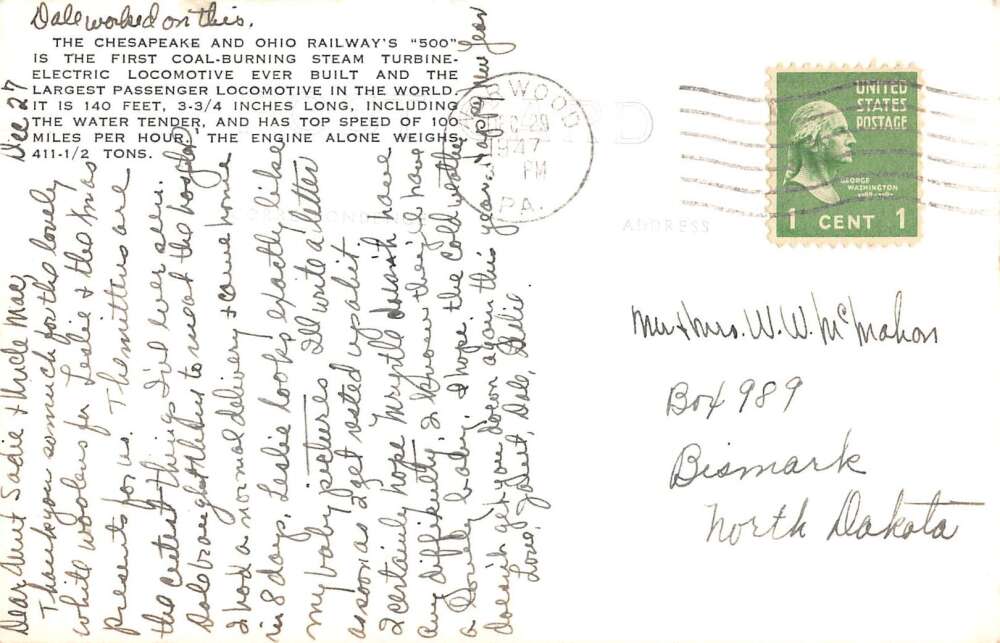 Dale worked on this.
THE CHESAPEAKE AND OHIO RAILWAY'S "500"
IS THE FIRST COAL-BURNING STEAM TURBINE-
ELECTRIC LOCOMOTIVE EVER BUILT AND THE
LARGEST PASSENGER LOCOMOTIVE IN THE WORLD.
IT IS 140 FEET, 3-3/4 INCHES LONG, INCLUDING
THE WATER TENDER, AND HAS TOP SPEED OF 100
MILES PER HOUR. THE ENGINE ALONE WEIGHS
411-1/2 TONS.
Dec 27
Dear Aunt Sadie & Uncle Mac,
Thank you so much for the lovely
white woolens for Leslie & the Xmas
presents for us. The mittens are
the cutest things I've ever seen.
Dale brought them to me at the hospital.
I had a normal delivery & came home
in 8 days. Leslie looks exactly like
my baby pictures. I'll write a letter
as soon as I get rested up a bit.
I certainly hope Myrtle doesn't have
any difficulty. I know they'll have
a lovely baby. I hope the cold weather
doesn't get you down again this year. Happy New Year
Love, Dale,
NORWOOD
DEC 29
1947
PM
PA.
CORRESPONDENCE
ADDRESS
UNITED
STATES
POSTAGE
GEORGE
WASHINGTON
1 CENT 1
Mr & Mrs. W. W. McMahon
Box 989
Bismark
North Dakota